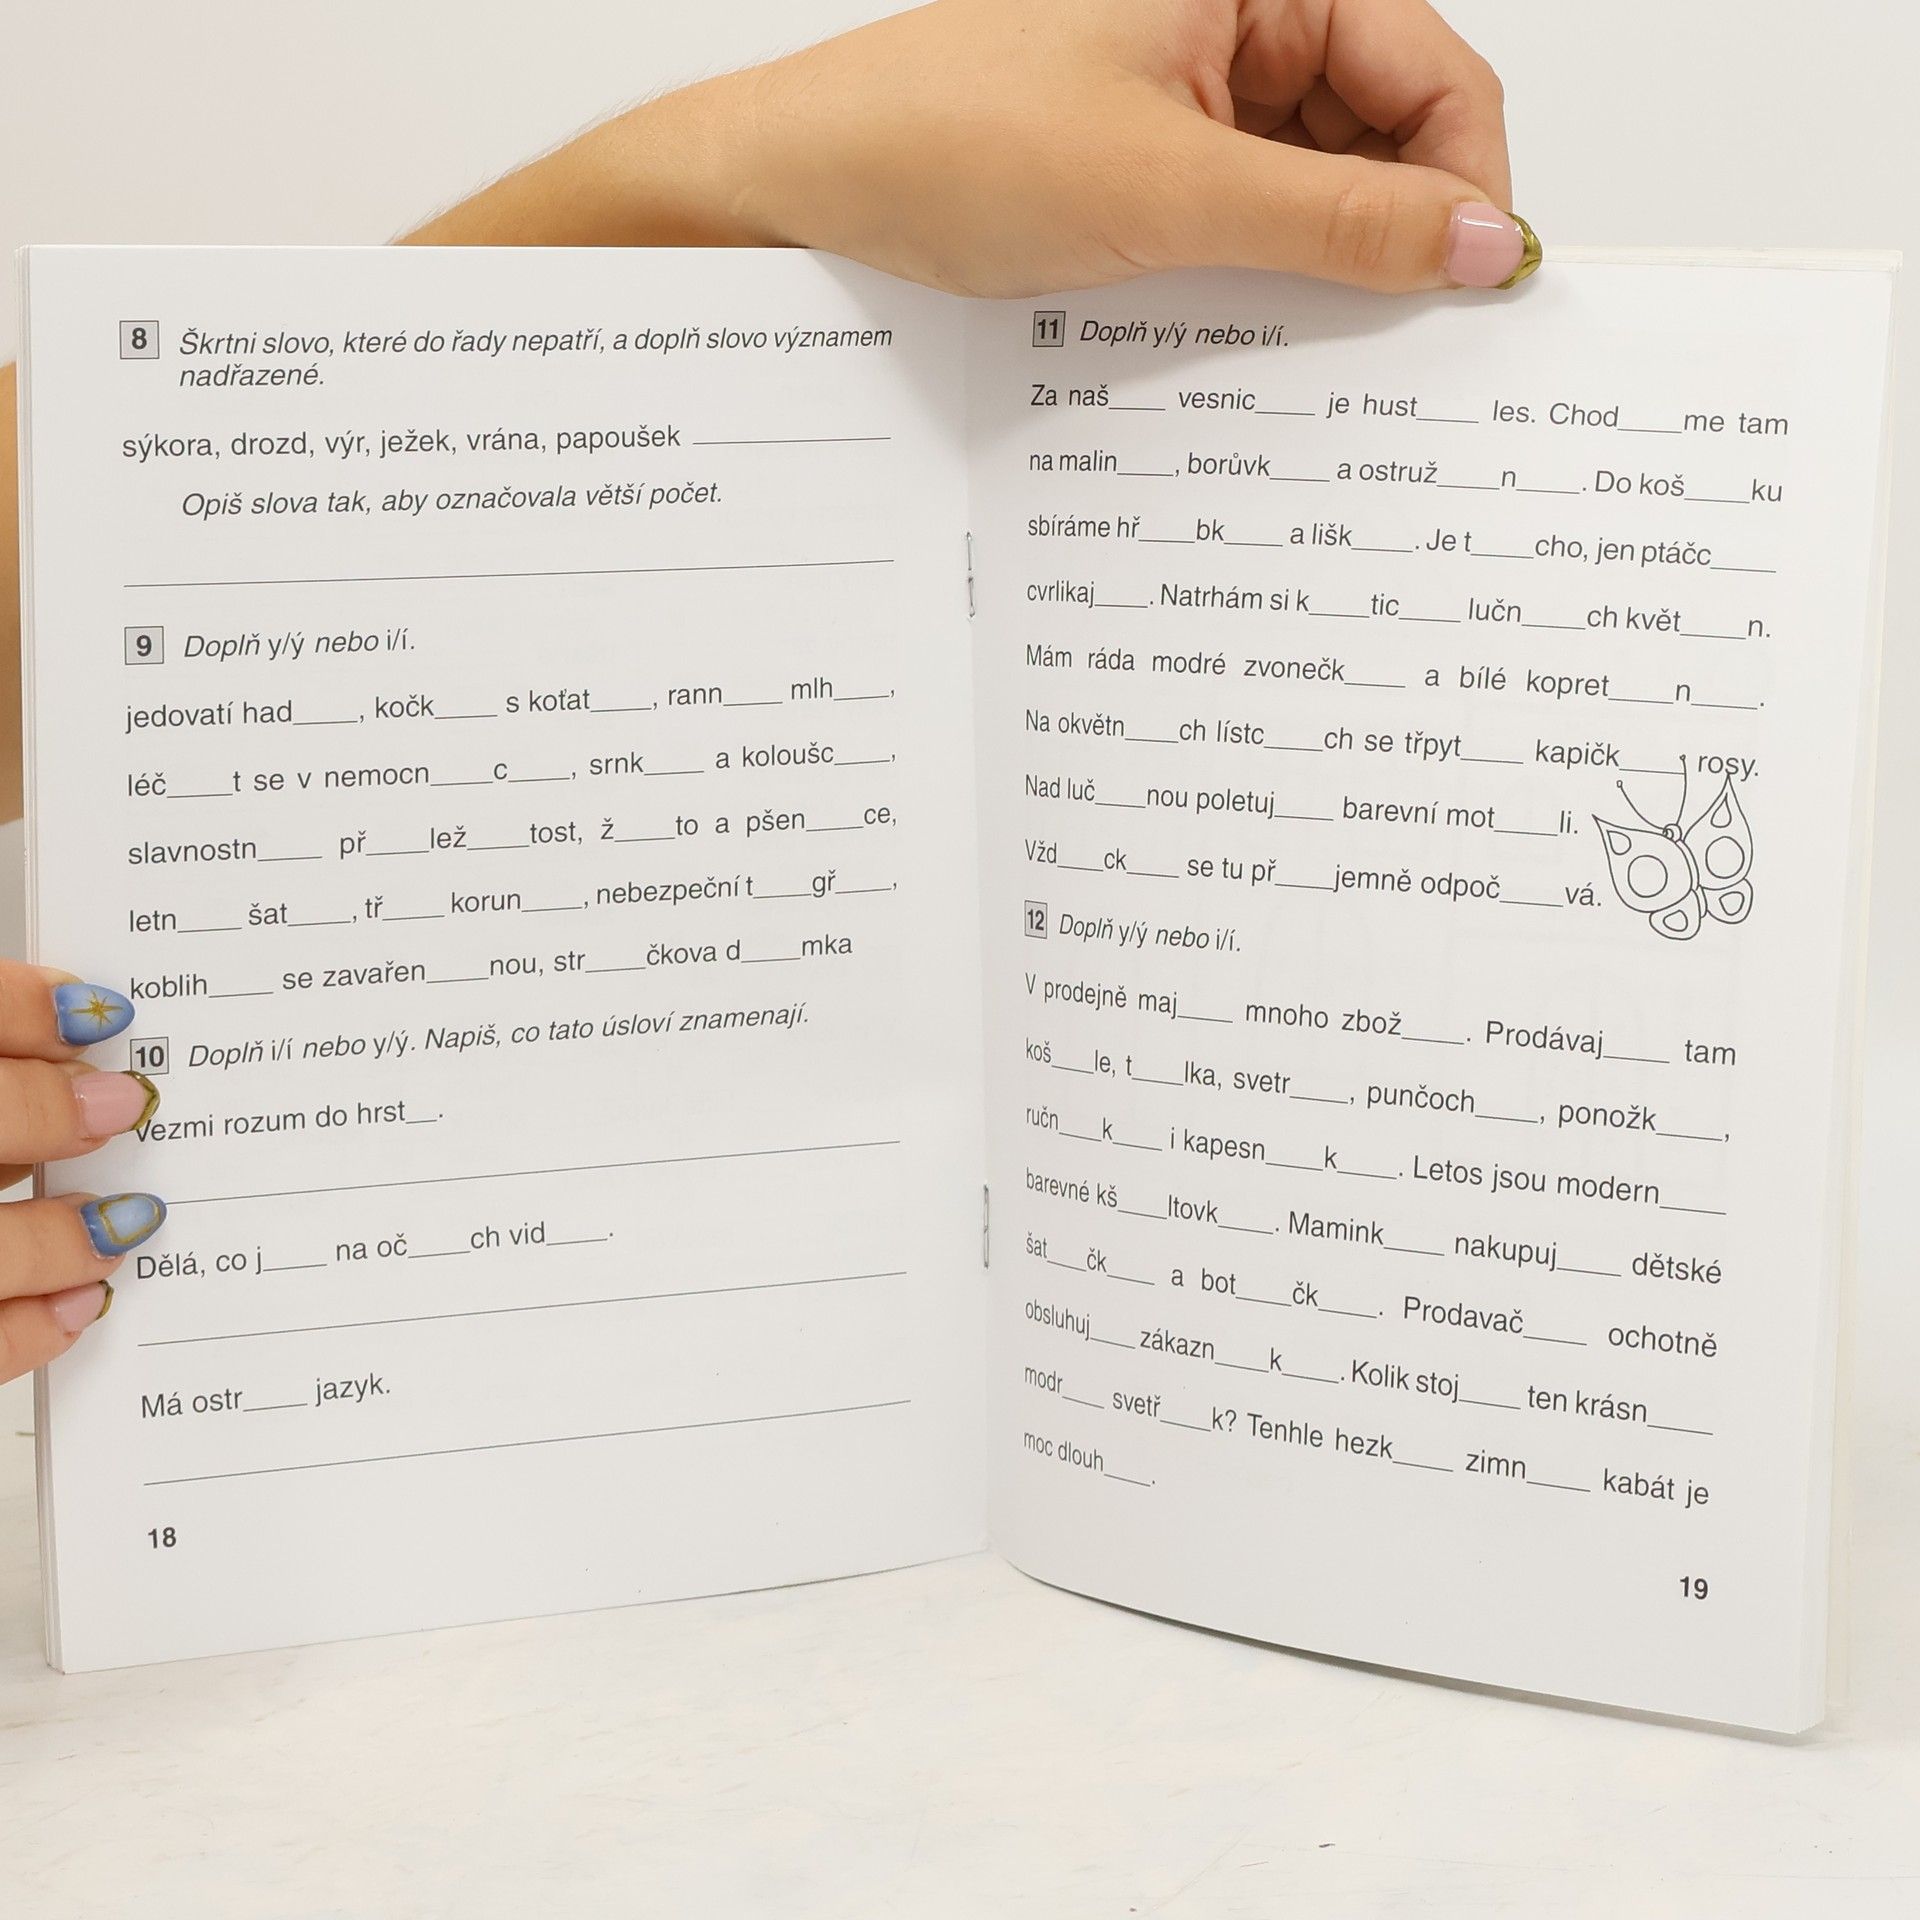 8 Škrtni slovo, které do řady nepatří, a doplň slovo významem
nadřazené.
sýkora, drozd, výr, ježek, vrána, papoušek ____
Opiš slova tak, aby označovala větší počet.
9 Doplň y/ý nebo i/í.
jedovatí had____, kočk____ s koťat____, rann____ mlh____,
léč____t se v nemocn____c____, srnk____ a koloušc____,
slavnostn____ př____lež____tost, ž____to a pšen____ce,
letn____ šat____, tř____ korun____, nebezpeční t____gř____,
koblih____ se zavařen____nou, str____čkova d____mka
10 Doplň i/í nebo y/ý. Napiš, co tato úsloví znamenají.
Vezmi rozum do hrst__.
Dělá, co j____ na oč____ch vid____.
Má ostr____ jazyk.
18
11 Doplň y/ý nebo i/í.
Za naš____ vesnic____ je hust____ les. Chod____me tam
na malin____, borůvk____ a ostruž____n____. Do koš____ku
sbíráme hř____bk____ a lišk____. Je t____cho, jen ptáčc____
cvrlikaj____. Natrhám si k____tic____ lučn____ch květ____n.
Mám ráda modré zvonečk____ a bílé kopret____n____.
Na okvětn____ch lístc____ch se třpyt____ kapičk____ rosy.
Nad luč____nou poletuj____ barevní mot____li.
Vžd____ck____ se tu př____jemně odpoč____vá.
12 Doplň y/ý nebo i/í.
V prodejně maj____ mnoho zbož____. Prodávaj____ tam
koš____le, t____lka, svetr____, punčoch____, ponožk____,
ručn____k____ i kapesn____k____. Letos jsou modern____
barevné kš____ltovk____. Mamink____ nakupuj____ dětské
šat____čk____ a bot____čk____. Prodavač____ ochotně
obsluhuj____ zákazn____k____. Kolik stoj____ ten krásn____
modr____ svetř____k? Tenhle hezk____ zimn____ kabát je
moc dlouh____.
19